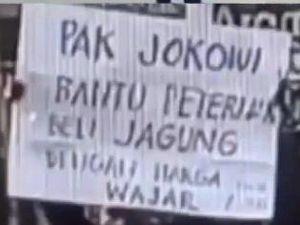 PAK JOKOWI
BANTU PETERNAK
BELI JAGUNG
DENGAN HARGA
WAJAR !